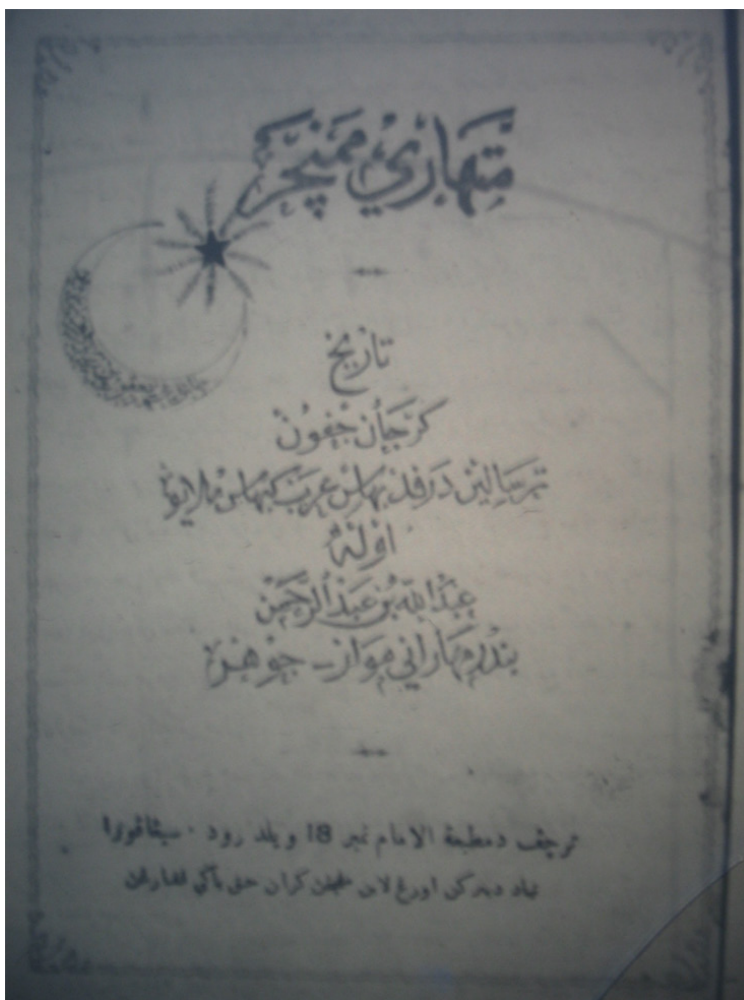 متهاري ممنچر
تاريخ
كرجاءن جفون
ترسالين درفد بهاس عرب كبهاس ملايو
اوله
عبدالله بن عبدالرحمن
بندر مهاراني موار - جوهر
ترچف دمطبعة الامام نمبر 18 ويلد رود . سيڠافورا
تياد دبنركن اورڠ لاين كران حق باڬي